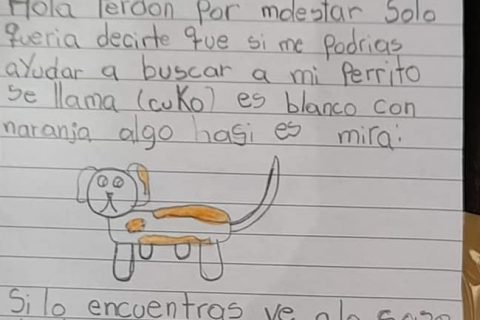 Hola Perdon por molestar Solo
queria decirte que si me podrias
ayudar a buscar a mi perrito
se llama (cuko) es blanco con
naranja algo hasi es mira:
Si lo encuentras ve a la casa